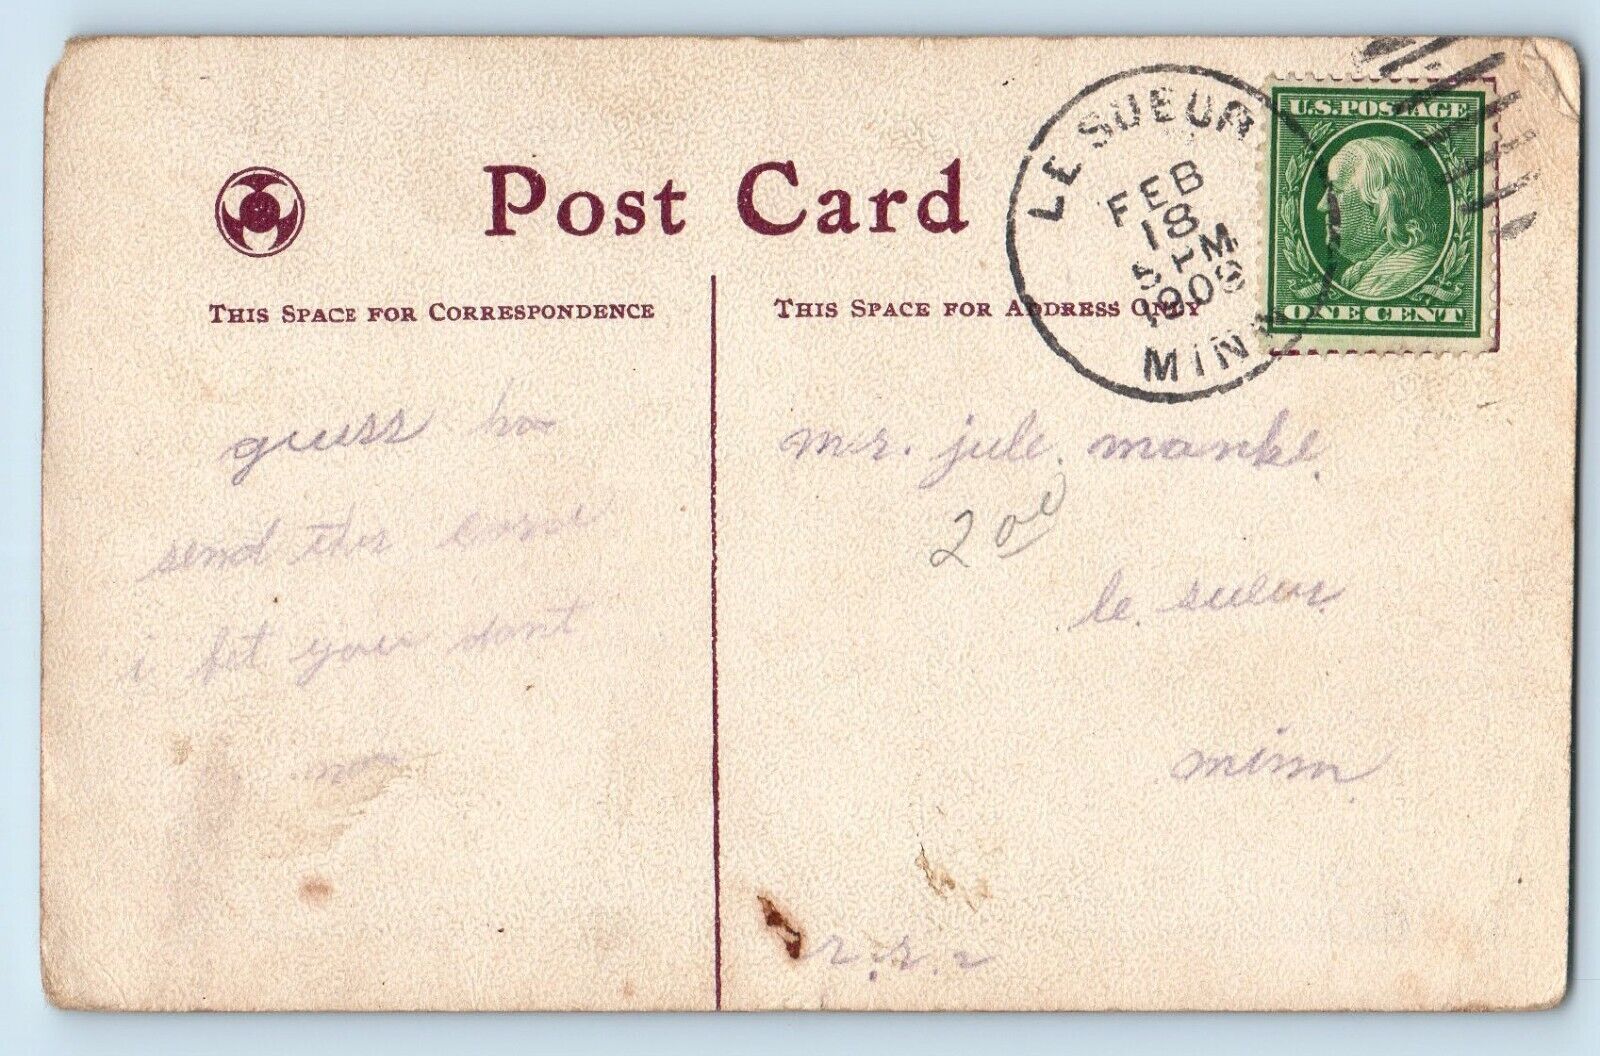 Post Card
THIS SPACE FOR CORRESPONDENCE
THIS SPACE FOR ADDRESS ONLY
LE SUEUR
FEB
18
5 PM
1909
MINN
U.S. POSTAGE
ONE CENT
guess ho
send this
i bet you dont
mr. jule. manke.
2 00
le. sueur.
minn
r. r. 2